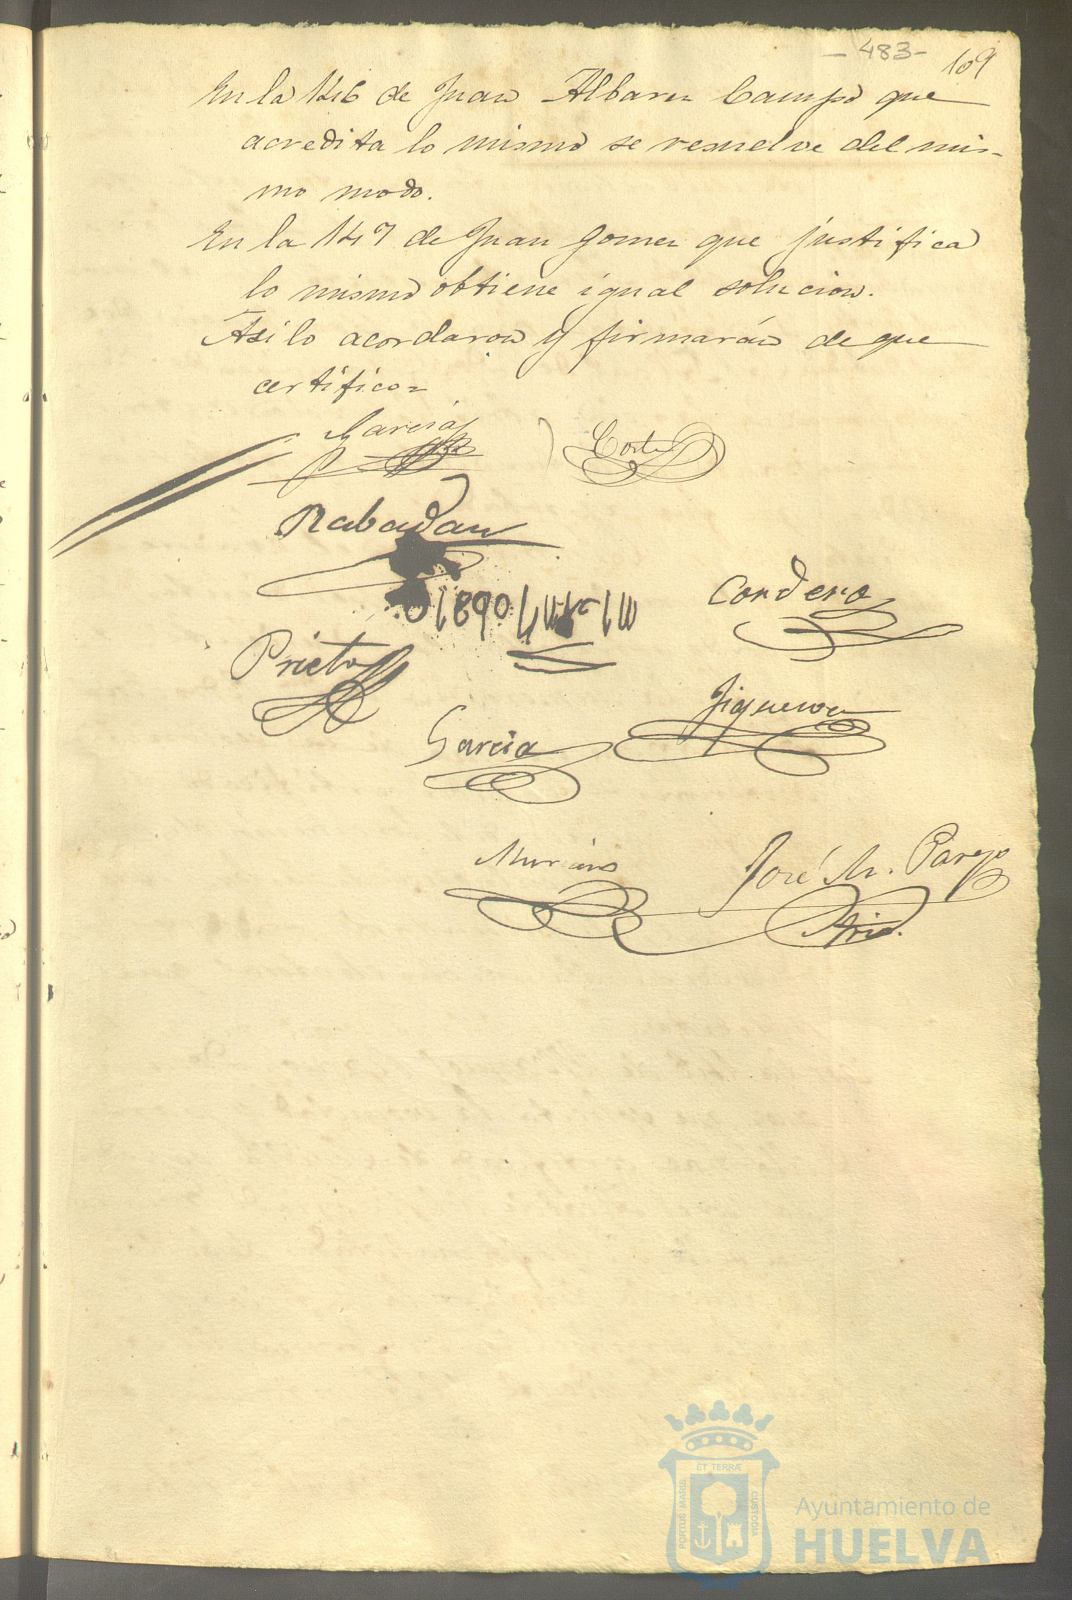 - 483 - 109
En la 146 de Juan Albarez Campo que
acredita lo mismo se resuelve del mis-
mo modo.
En la 147 de Juan Gomez que justifica
lo mismo obtiene igual solucion.
Asi lo acordaron y firmarán de que
certifico=
Garcia
Cortés
Rabadan
Cordero
Prieto
Figueroa
Garcia
José M. Parejo
Srio.
ET TERRÆ
PORTUS MARIS
CUSTODIA
Ayuntamiento de
HUELVA